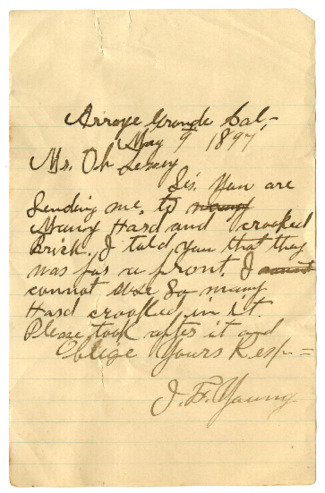 Arroyo Grande Cal-
May 9 1897
Mr. Oh
Sir. You are
Sending me, to many
Many Hard and crooked
Brick. I told you that they
was for a front. I
cannot use So many
Hard crooked in it.
Please look after it and
Oblige Yours Resp-
J. F. Young